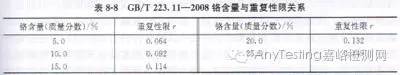 表 8-8 GB/T 223.11—2008 铬含量与重复性限关系
铬含量(质量分数)/% 重复性限r 铬含量(质量分数)/% 重复性限r
5.0 0.064 20.0 0.132
10.0 0.092
15.0 0.114
AnyTesting嘉峪检测网